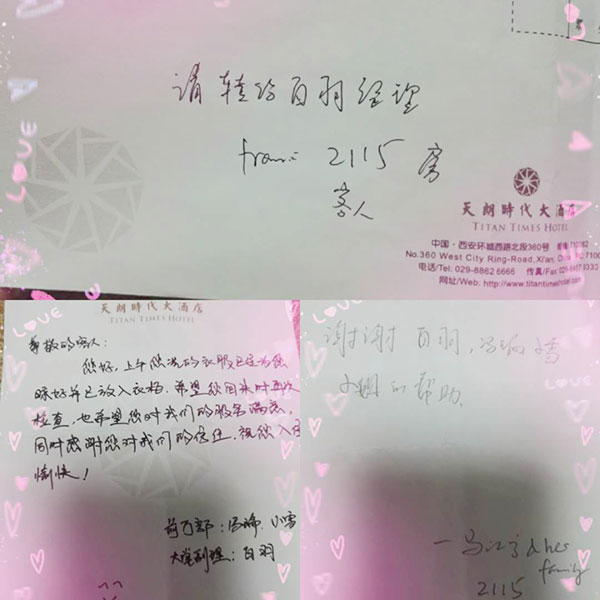 LOVE
请转给百羽经理
from: 2115房
客人
天朗時代大酒店
TITAN TIMES HOTEL
中国·西安环城西路北段360号
No.360 West City Ring-Road, Xi'an,
电话/Tel. 029-8862 6666 传真/Fax
网址/Web: http://www.titantimeshotel.com
LOVE
天朗時代大酒店
TITAN TIMES HOTEL
尊敬的客人:
您好,上午您洗的衣服已经为您
晾好并已放入衣柜,希望您回来时再次
检查,也希望您对我们的服务满意,
同时感谢您对我们的信任,祝您入住
愉快!
前厅部:冯 小雪
大堂副理:白羽
谢谢 百羽,冯 雪
的帮助
& her
family
2115
LOVE